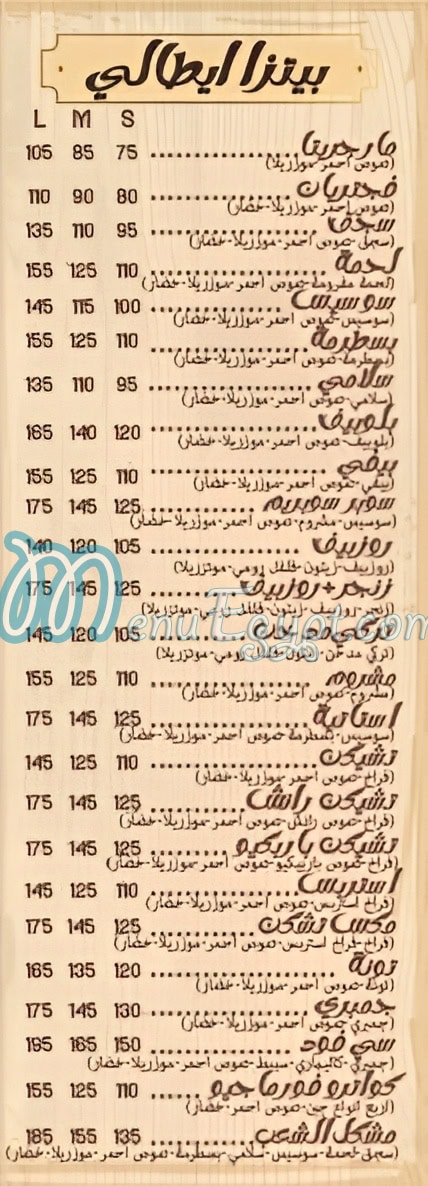 بيتزا ايطالي
L M S
مارجريتا 75 85 105
(صوص احمر-موزريلا)
فجتريان 80 90 110
(صوص احمر-موزريلا-خضار)
سجق 95 110 135
(سجق-صوص احمر-موزريلا-خضار)
لحمة 110 125 155
(لحمة مفرومة-صوص احمر-موزريلا-خضار)
سوسيس 100 115 145
(سوسيس-صوص احمر-موزريلا-خضار)
بسطرمة 110 125 155
(بسطرمة-صوص احمر-موزريلا-خضار)
سلامي 95 110 135
(سلامي-صوص احمر-موزريلا-خضار)
بلوبيف 120 140 165
(بلوبيف-صوص احمر-موزريلا-خضار)
بيفي 110 125 155
(بيفي-صوص احمر-موزريلا-خضار)
سوبر سوبريم 125 145 175
(سوسيس-مشروم-صوص احمر-موزريلا-خضار)
روزبيف 105 120 140
(روزبيف-زيتون-فلفل رومي-موتزريلا)
زنجر+روزبيف 125 145 175
(زنجر-روزبيف-زيتون-فلفل رومي-موتزريلا)
تركي مدخن 105 120 145
(تركي مدخن-زيتون-فلفل رومي-موتزريلا)
MenuEgypt.com
مشروم 110 125 155
(مشروم-صوص احمر-موزريلا-خضار)
استاتية 125 145 175
(سوسيس-بسطرمة-صوص احمر-موزريلا-خضار)
تشيكن 110 125 145
(فراخ-صوص احمر-موزريلا-خضار)
تشيكن رانش 125 145 175
(فراخ-صوص رانش-صوص احمر-موزريلا-خضار)
تشيكن باربكيو 125 145 175
(فراخ-صوص باربيكيو-صوص احمر-موزريلا-خضار)
استربس 110 125 145
(فراخ استربس-صوص احمر-موزريلا-خضار)
مكس تشكن 125 145 175
(فراخ-فراخ استربس-صوص احمر-موزريلا-خضار)
تونة 120 135 165
(تونة-صوص احمر-موزريلا-خضار)
جمبري 130 145 175
(جمبري-صوص احمر-موزريلا-خضار)
سي فود 150 165 195
(جمبري-كاليماري-سبيط-صوص احمر-موزريلا-خضار)
كواترو فورماجيو 110 125 155
(اربع انواع جبن-صوص احمر-خضار)
مشكل الشعب 135 155 185
(سجق-لحمة-سوسيس-سلامي-بسطرمة-صوص احمر-موزريلا-خضار)